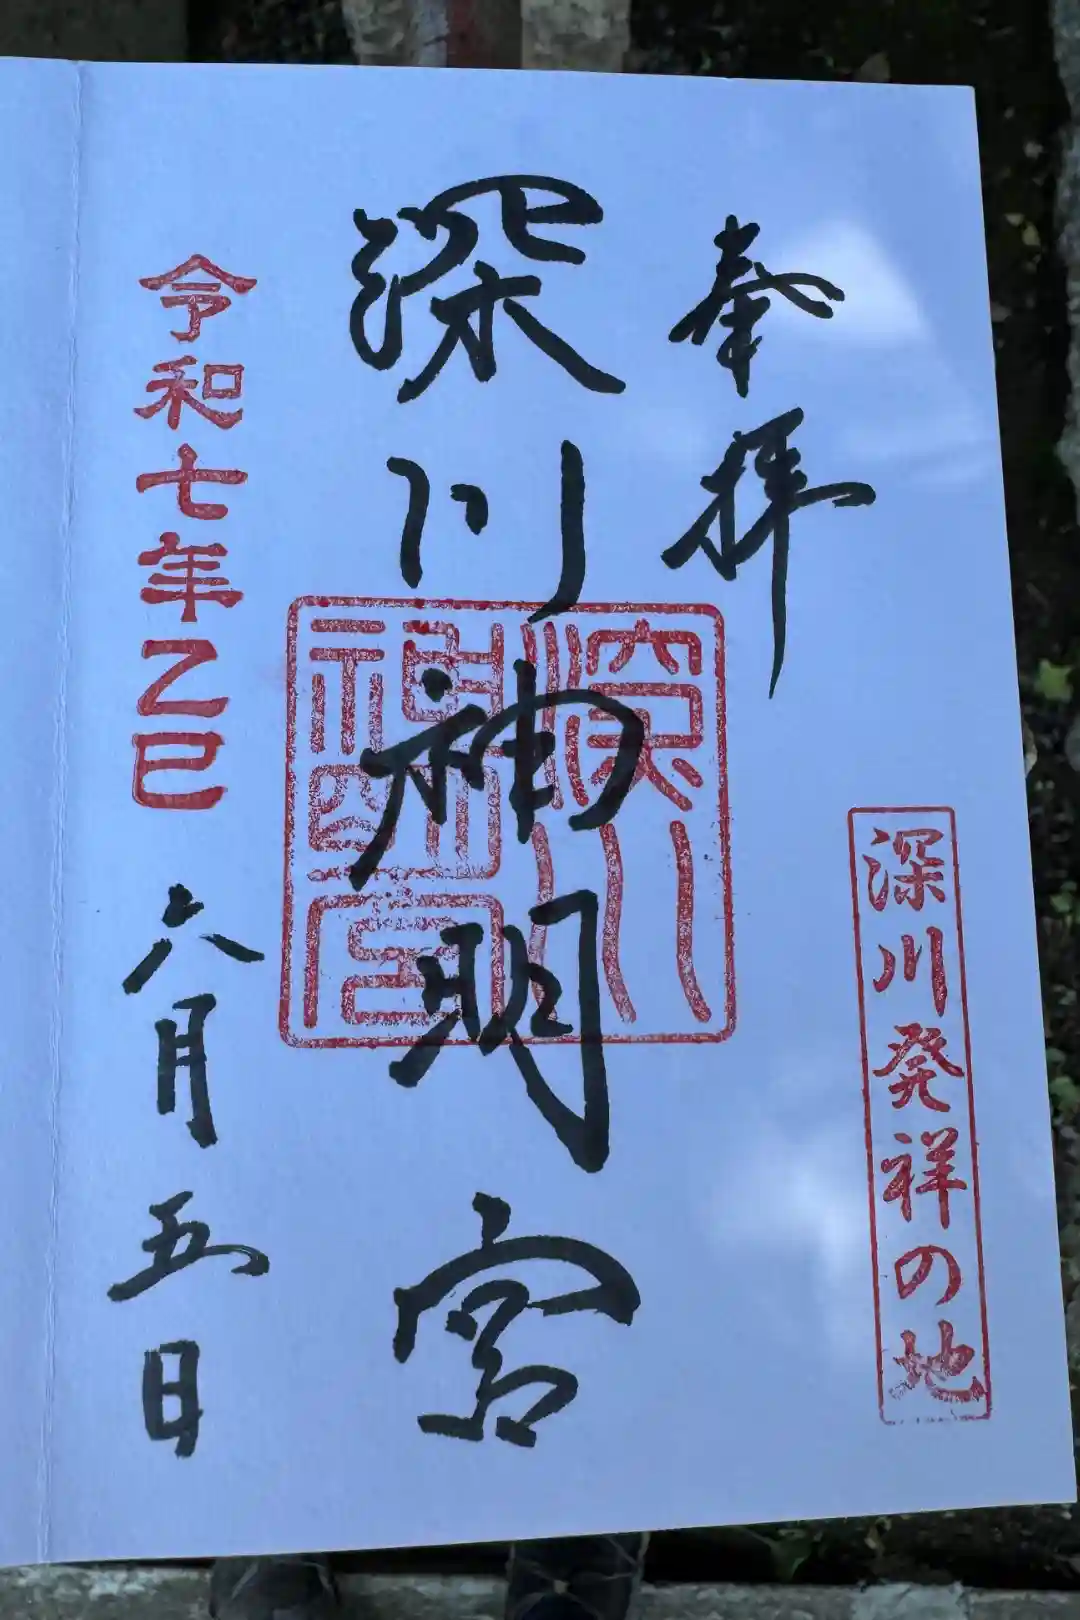 奉拝
深川発祥の地
深川神明宮
深川
神明宮
令和七年乙巳
六月五日